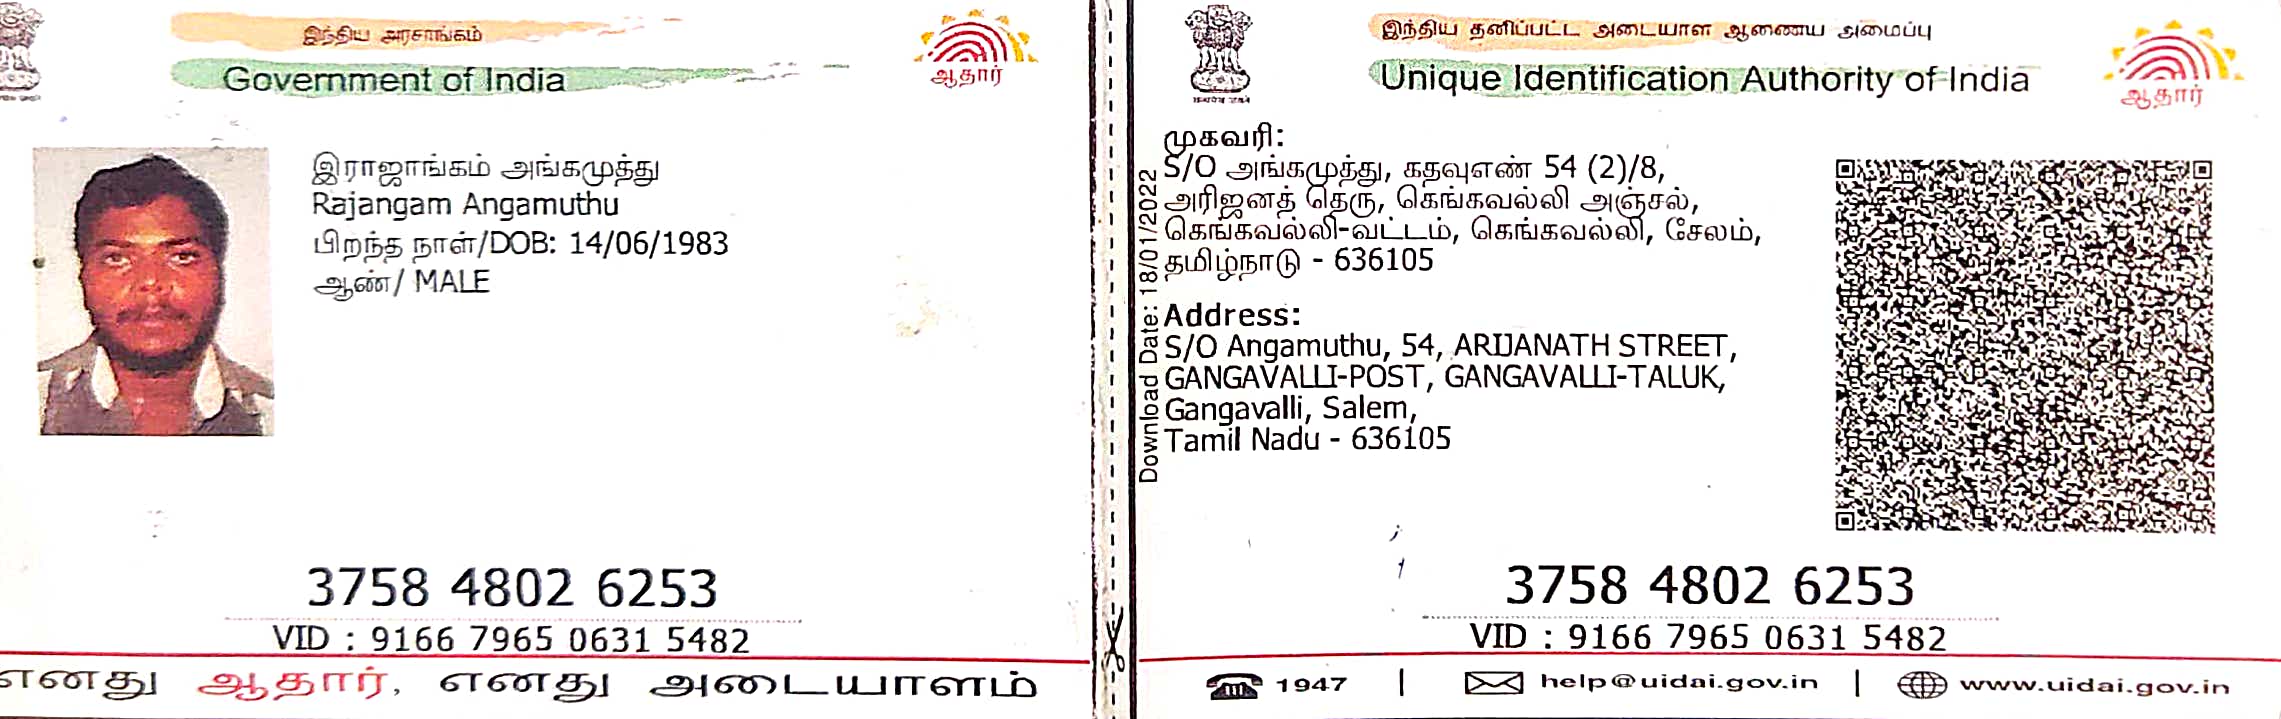 இந்திய அரசாங்கம்
Government of India
ஆதார்
இராஜாங்கம் அங்கமுத்து
Rajangam Angamuthu
பிறந்த நாள்/DOB: 14/06/1983
ஆண்/ MALE
3758 4802 6253
VID : 9166 7965 0631 5482
எனது ஆதார், எனது அடையாளம்
இந்திய தனிப்பட்ட அடையாள ஆணைய அமைப்பு
Unique Identification Authority of India
ஆதார்
Download Date: 18/01/2022
முகவரி:
S/O அங்கமுத்து, கதவுஎண் 54 (2)/8,
அரிஜனத் தெரு, கெங்கவல்லி அஞ்சல்,
கெங்கவல்லி-வட்டம், கெங்கவல்லி, சேலம்,
தமிழ்நாடு - 636105
Address:
S/O Angamuthu, 54, ARIJANATH STREET,
GANGAVALLI-POST, GANGAVALLI-TALUK,
Gangavalli, Salem,
Tamil Nadu - 636105
3758 4802 6253
VID : 9166 7965 0631 5482
1947 | help@uidai.gov.in | www.uidai.gov.in